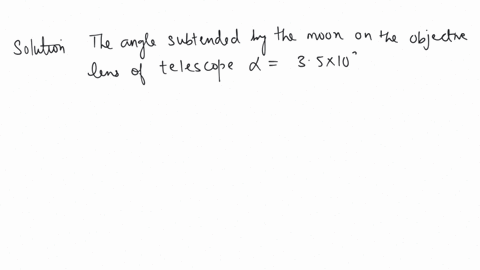 Solution The angle subtended by the moon on the objective
lens of telescope α = 3.5×10